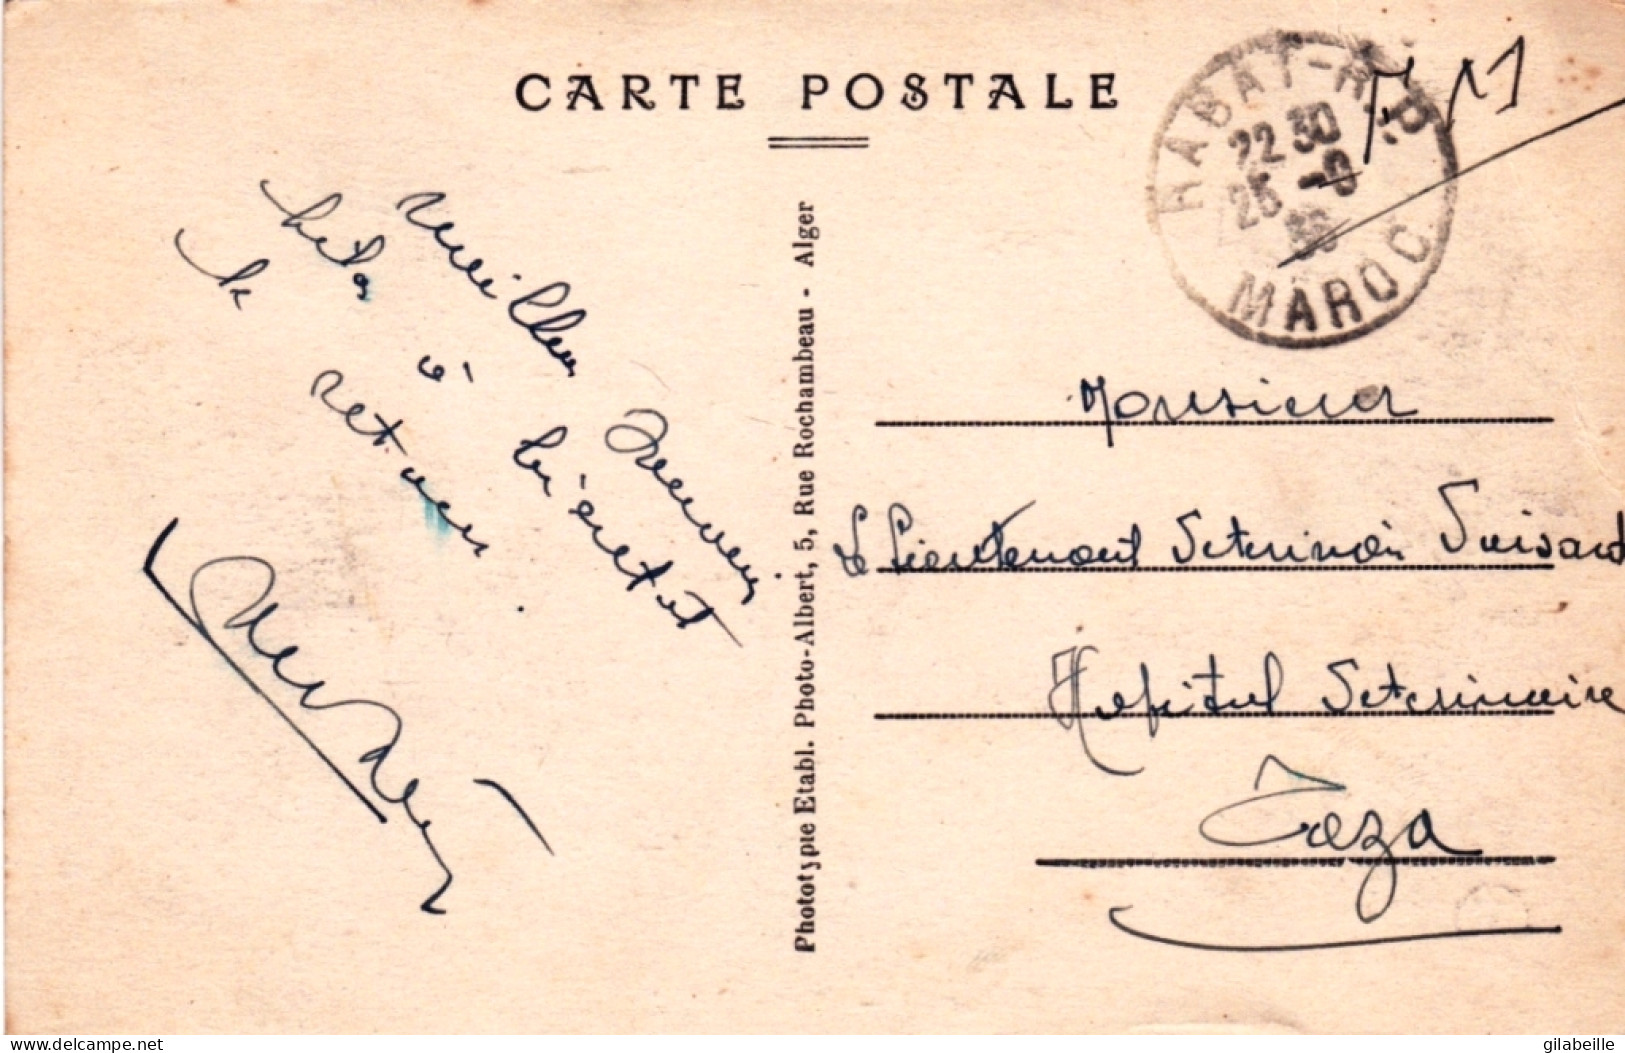 CARTE POSTALE
RABAT-R.P.
22 30
25 -9
36
MAROC
F.M
meilleur souvenir
à bientôt
le retour.
Phototypie Etabl. Photo-Albert, 5, Rue Rochambeau - Alger
Monsieur
Le Lieutenant Veterinaire Suisard
Hopital Veterinaire
Taza
delcampe.net
gilabeille